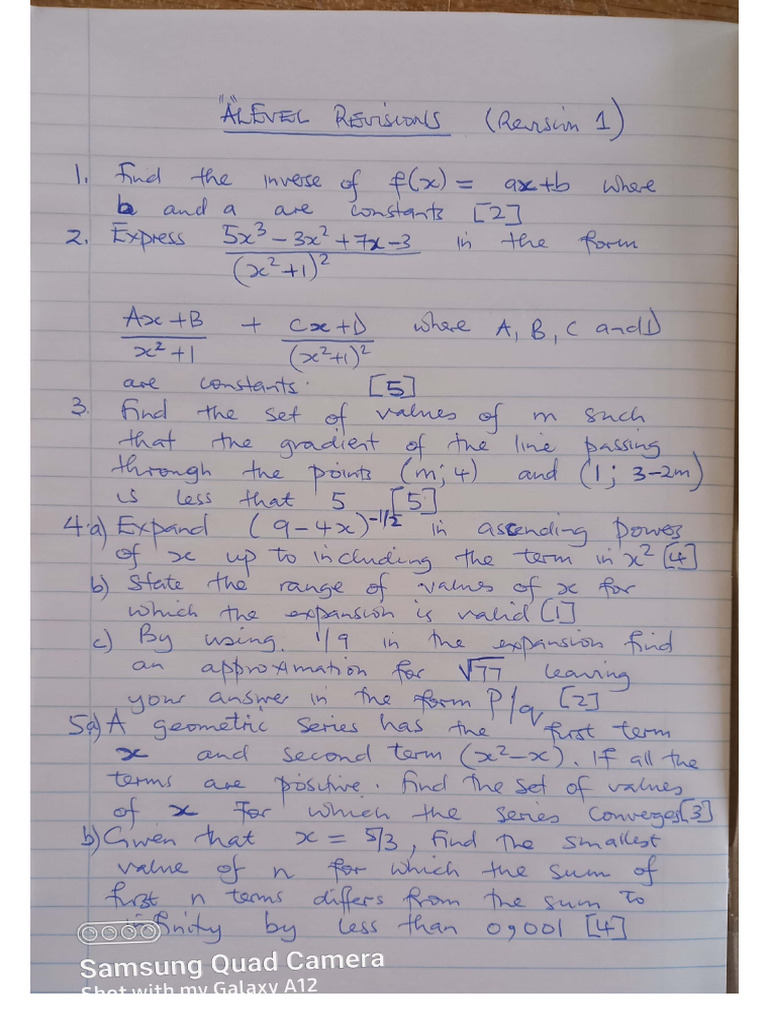 "A" LEVEL REVISIONS (Revision 1)
1. Find the inverse of f(x) = ax+b where
b and a are constants [2]
2. Express (5x³ − 3x² + 7x − 3)/(x²+1)² in the form
(Ax+B)/(x²+1) + (Cx+D)/(x²+1)² where A, B, C and D
are constants. [5]
3. Find the set of values of m such
that the gradient of the line passing
through the points (m; 4) and (1; 3−2m)
is less that 5 [5]
4.a) Expand (9−4x)^-1/2 in ascending powers
of x up to including the term in x² [4]
b) State the range of values of x for
which the expansion is valid [1]
c) By using 1/9 in the expansion find
an approximation for √77 leaving
your answer in the form P/q [2]
5a) A geometric series has the first term
x and second term (x²−x). If all the
terms are positive. Find the set of values
of x for which the series converges [3]
b) Given that x = 5/3, find the smallest
value of n for which the sum of
first n terms differs from the sum to
infinity by less than 0,001 [4]
Samsung Quad Camera
Shot with my Galaxy A12